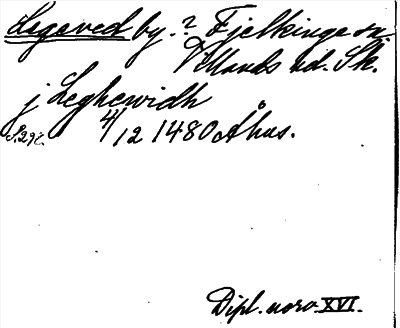 Legeved by.? Fjelkinge sn.
Villands hd. Sk.
j Leghewidh
S.292. 4/12 1480 Åhus.
Dipl. norv. XVI.